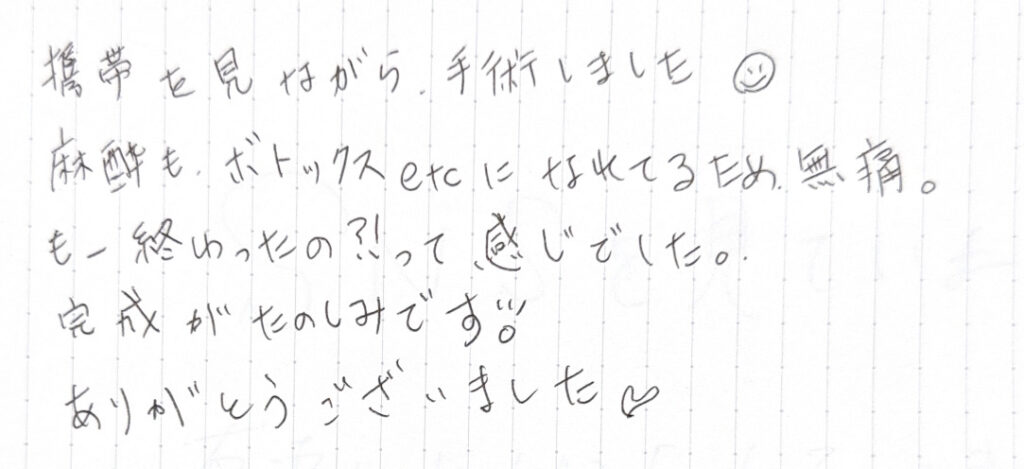 携帯を見ながら、手術しました☺
麻酔も、ボトックスetcになれてるため、無痛。
もー終わったの?!って、感じでした。
完成がたのしみです!!
ありがとうございました♡